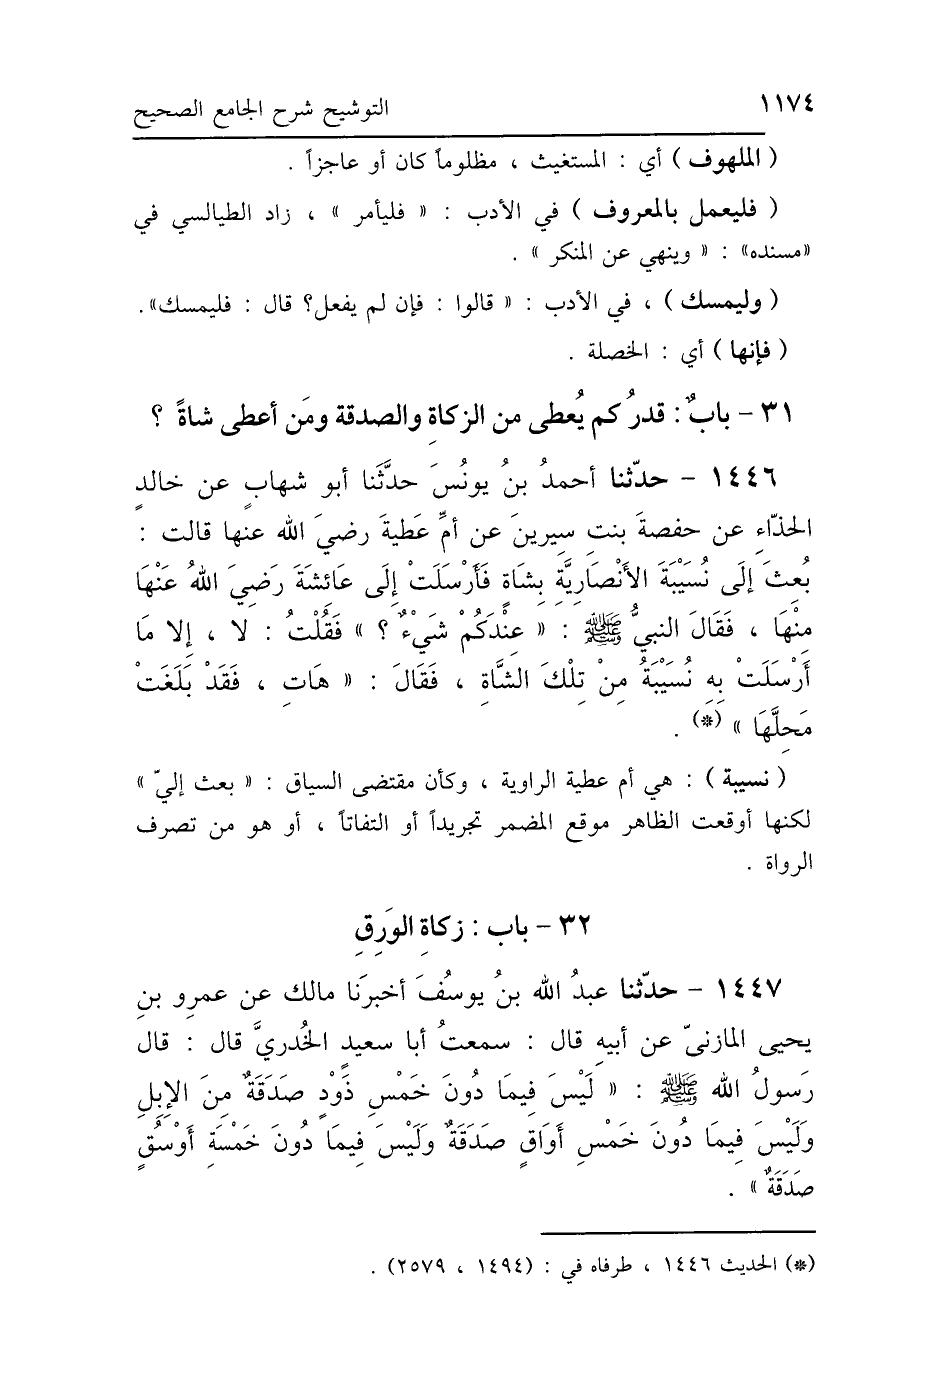 ١١٧٤ التوشيح شرح الجامع الصحيح
( الملهوف ) أي : المستغيث ، مظلوماً كان أو عاجزاً .
( فليعمل بالمعروف ) في الأدب : « فليأمر » ، زاد الطيالسي في
«مسنده» : « وينهي عن المنكر » .
( وليمسك ) ، في الأدب : « قالوا : فإن لم يفعل؟ قال : فليمسك».
( فإنها ) أي : الخصلة .
٣١ - بابٌ : قدرُ كم يُعطى من الزكاةِ والصدقة ومَن أعطى شاةً ؟
١٤٤٦ - حدّثنا أحمدُ بنُ يونُسَ حدَّثَنا أبو شهابٍ عن خالدٍ
الحذّاءِ عن حفصةَ بنتِ سِيرِينَ عن أمِّ عَطيةَ رضيَ الله عنها قالت :
بُعِثَ إلَى نُسَيْبَةَ الأَنْصَارِيَّةِ بِشَاةٍ فَأَرْسَلَتْ إِلَى عَائِشَةَ رَضِيَ اللهُ عَنْهَا
مِنْهَا ، فَقَالَ النبيُّ ﷺ : « عِنْدَكُمْ شَيْءٌ ؟ » فَقُلْتُ : لا ، إلا مَا
أَرْسَلَتْ بِهِ نُسَيْبَةُ مِنْ تِلْكَ الشَّاةِ ، فَقَالَ : « هَاتِ ، فَقَدْ بَلَغَتْ
مَحِلَّهَا » (*) .
( نسيبة ) : هي أم عطية الراوية ، وكأن مقتضى السياق : « بعث إليّ »
لكنها أوقعت الظاهر موقع المضمر تجريداً أو التفاتاً ، أو هو من تصرف
الرواة .
٣٢ - باب : زكاةِ الوَرِقِ
١٤٤٧ - حدّثنا عبدُ الله بنُ يوسُفَ أخبرَنا مالك عن عمرِو بنِ
يحيى المازنيّ عن أبيهِ قال : سمعتُ أبا سعيدٍ الخُدريَّ قال : قال
رَسولُ الله ﷺ : « لَيْسَ فِيمَا دُونَ خَمْسِ ذَوْدٍ صَدَقَةٌ مِنَ الإِبِلِ
وَلَيْسَ فِيمَا دُونَ خَمْسِ أَوَاقٍ صَدَقَةٌ وَلَيْسَ فِيمَا دُونَ خَمْسَةِ أَوْسُقٍ
صَدَقَةٌ » .
(*) الحديث ١٤٤٦ ، طرفاه في : (١٤٩٤ ، ٢٥٧٩) .